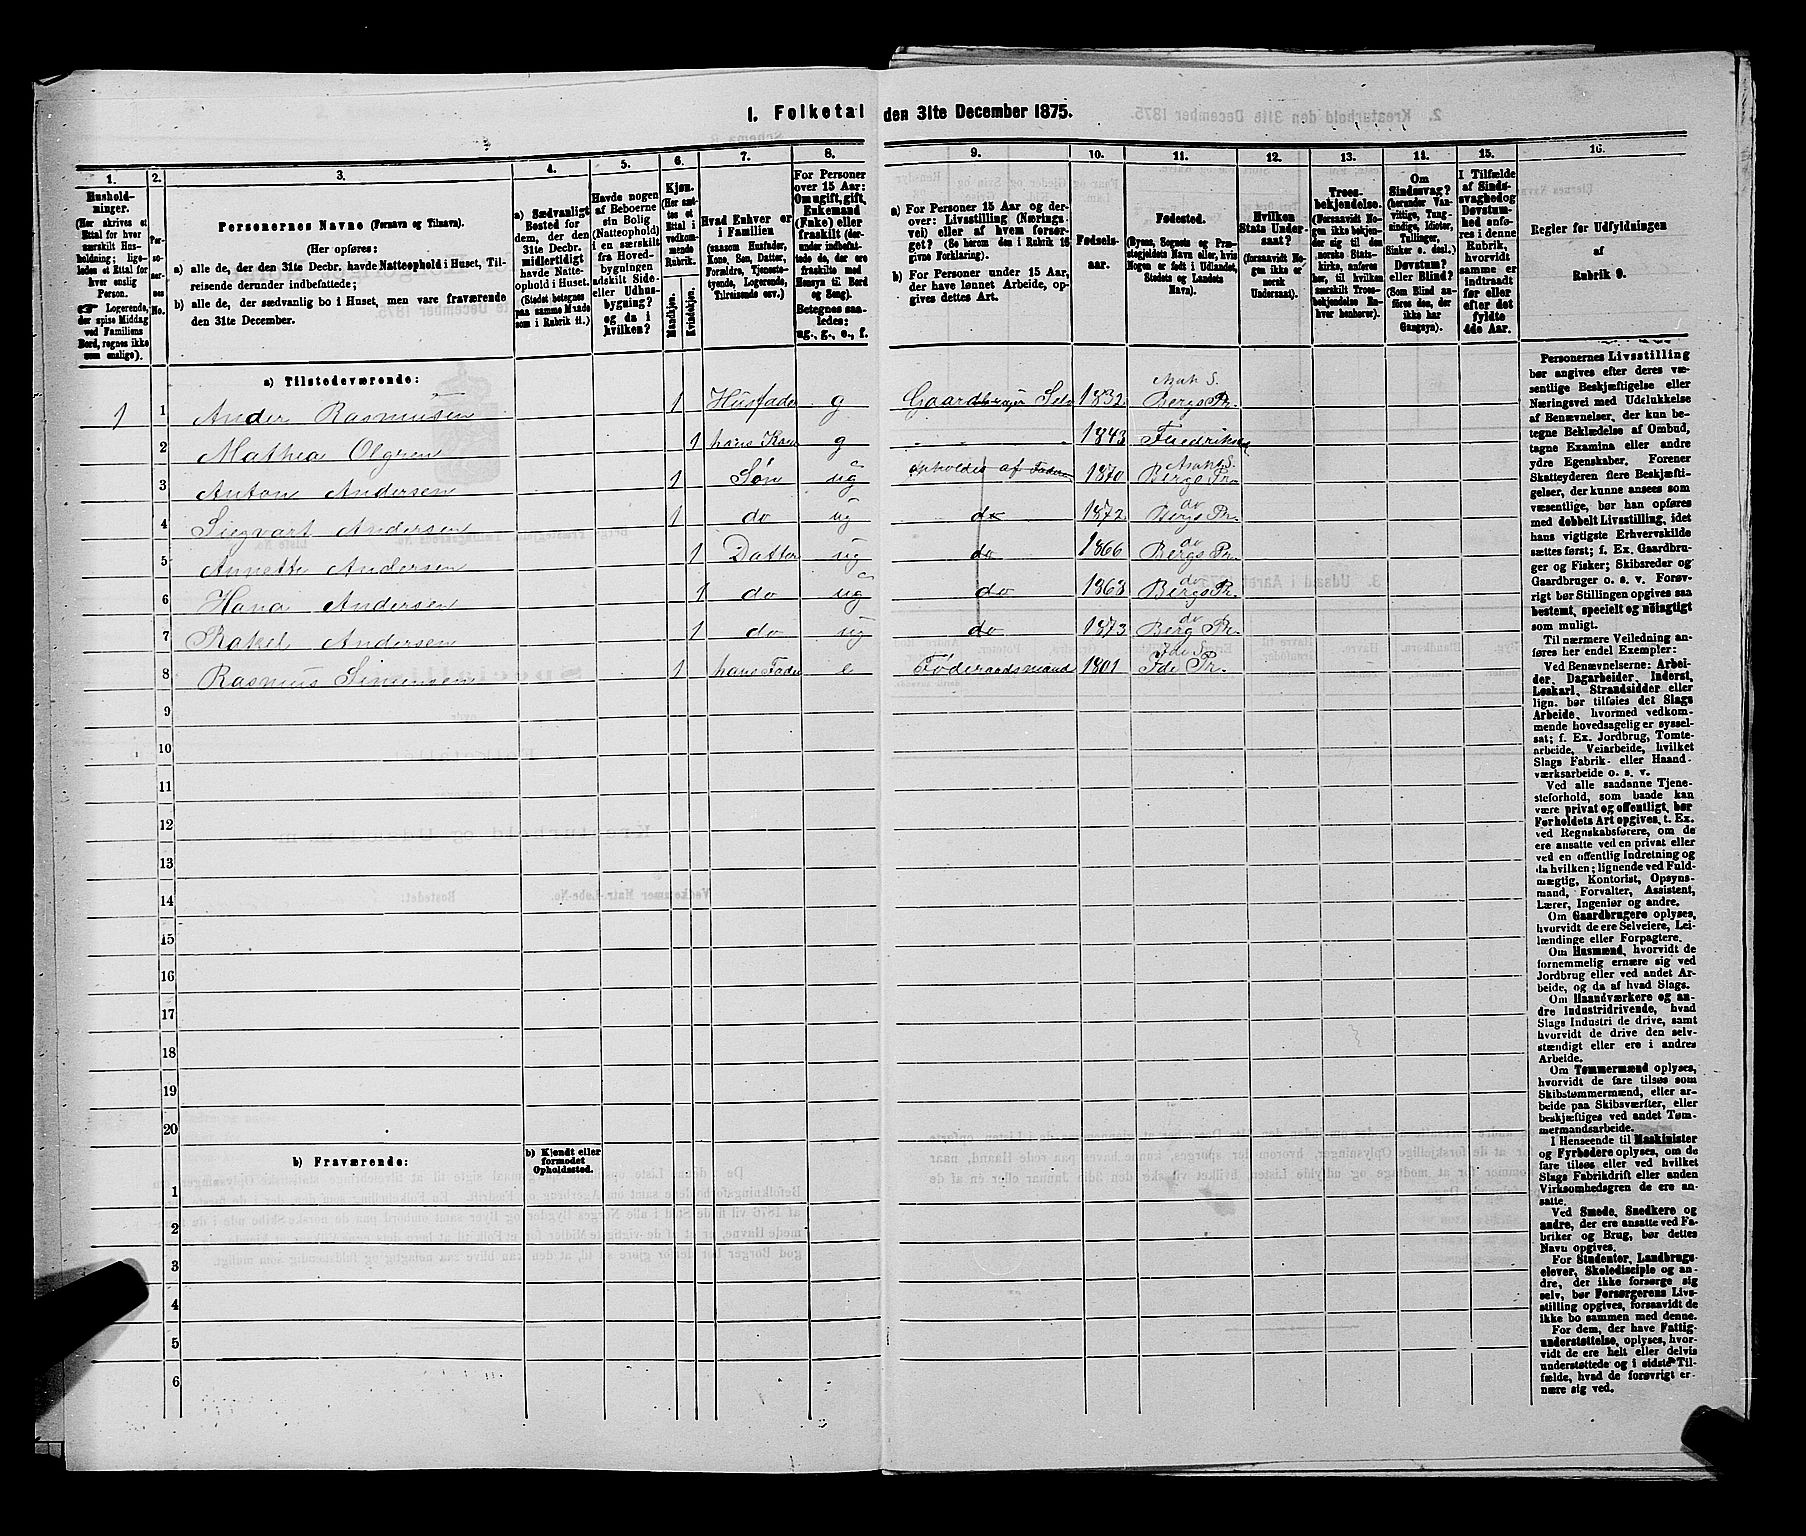 1. Folketal den 31te December 1875.
1. 2. 3. 4. 5. 6. 7. 8. 9. 10. 11. 12. 13. 14. 15. 16.
Hushold-
ninger.
(Her skrives et
Ettal for hver
særskilt Hus-
holdning; lige-
ledes et Ettal for
hver enslig
Person.
☞ Logerende,
der spise Middag
ved Familiens
Bord, regnes ikke
som enslige).
Per-
soner-
nes
No.
Personernes Navne (Fornavn og Tilnavn).
(Her opføres:
a) alle de, der den 31te Decbr. havde Natteophold i Huset, Til-
reisende derunder indbefattede;
b) alle de, der sædvanlig bo i Huset, men vare fraværende
den 31te December.
a) Sædvanligt
Bosted for
dem, der den
31te Decbr.
midlertidigt
havde Natte-
ophold i Huset.
(Stedet betegnes
paa samme Maade
som i Rubrik 11.)
Havde nogen
af Beboerne
sin Bolig
(Natteophold)
i en særskilt
fra Hoved-
bygningen
adskilt Side-
eller Udhus-
bygning?
og da i
hvilken?
Kjøn.
(Her sæt-
tes et
Ettal i
vedkom-
mende
Rubrik.
Mandkjøn.
Kvindekjøn.
Hvad Enhver er
i Familien
(saasom Husfader,
Kone, Søn, Datter,
Forældre, Tjeneste-
tyende, Logerende,
Tilreisende osv.)
For Personer
over 15 Aar:
Om ugift, gift,
Enkemand
(Enke) eller
fraskilt (der-
under indbefat-
tede de, der ere
fraskilte med
Hensyn til Bord
og Seng).
Betegnes saa-
ledes:
ug., g., e., f.
a) For Personer 15 Aar og der-
over: Livsstilling (Nærings-
vei) eller af hvem forsør-
get? (Se herom den i Rubrik 16
givne Forklaring).
b) For Personer under 15 Aar,
der have lønnet Arbeide, op-
gives dettes Art.
Fødsels-
aar.
Fødested.
(Byens, Sognets og Præ-
stegjeldets Navn eller, hvis
Nogen er født i Udlandet,
Stedets og Landets
Navn).
Hvilken
Stats Under-
saat?
(forsaavidt No-
gen ikke er
norsk
Undersaat).
Troes-
bekjendelse.
(Forsaavidt No-
gen ikke bekjen-
der sig til den
norske Stats-
kirke, anføres
her, til hvilken
særskilt Troes-
bekjendelse En-
hver henhører).
Om
Sindssvag?
(herunder Van-
vittige, Tung-
sindige, Idioter,
Tullinger,
Sinker o. desl.).
Døvstum?
eller Blind?
(Som Blind an-
føres den, der
ikke har
Gangsyn).
I Tilfælde
af Sinds-
svaghed og
Døvstum-
hed anfø-
res i denne
Rubrik,
hvorvidt
samme er
indtraadt
før eller
efter det
fyldte
4de Aar.
Regler for Udfyldningen
af
Rubrik 9.
a) Tilstedeværende:
1 1 Ander Rasmusen 1 Husfader g Gaardbruger Selv 1832 Asak S. Bergs Pr.
2 Mathea Olgren 1 hans Kone g 1843 Fredriksh.
3 Anton Andersen 1 Søn ug opholdes af Faderen 1870 Asak S. Bergs Pr.
4 Siegvart Andersen 1 do ug do 1872 do Bergs Pr.
5 Annette Andersen 1 Datter ug do 1866 do Bergs Pr.
6 Hana Andersen 1 do ug do 1868 do Bergs Pr.
7 Rakel Andersen 1 do ug do 1873 do Berg Pr.
8 Rasmus Simensen 1 hans Fader e Föderaadsmand 1801 Ide S. Ide Pr.
9
10
11
12
13
14
15
16
17
18
19
20
b) Fraværende:
b) Kjendt eller
formodet
Opholdssted.
1
2
3
4
5
6
Personernes Livsstilling
bør angives efter deres væ-
sentlige Beskjæftigelse eller
Næringsvei med Udelukkelse
af Benævnelser, der kun be-
tegne Beklædelse af Ombud,
tagne Examina eller andre
ydre Egenskaber. Forener
Skatteyderen flere Beskjæfti-
gelser, der kunne ansees som
væsentlige, bør han opføres
med dobbelt Livsstilling, idet
hans vigtigste Erhvervskilde
sættes først; f. Ex. Gaardbru-
ger og Fisker; Skibsreder og
Gaardbruger o. s. v. Forøv-
rigt bør Stillingen opgives saa
bestemt, specielt og nøiagtigt
som muligt.
Til nærmere Veiledning an-
føres her endel Exempler:
Ved Benævnelserne: Arbei-
der, Dagarbeider, Inderst,
Løskarl, Strandsidder eller
lign. bør tilføies det Slags
Arbeide, hvormed vedkom-
mende hovedsagelig er syssel-
sat; f. Ex. Jordbrug, Tomte-
arbeide, Veiarbeide, hvilket
Slags Fabrik- eller Haand-
værksarbeide o. s. v.
Ved alle saadanne Tjene-
steforhold, som baade kan
være privat og offentligt, bør
Forholdets Art opgives, t. Ex.
ved Regnskabsførere, om de
ere ansatte ved en privat eller
ved en offentlig Indretning og
da hvilken; lignende ved Fuld-
mægtig, Kontorist, Opsyns-
mand, Forvalter, Assistent,
Lærer, Ingeniør og andre.
Om Gaardbrugere oplyses,
hvorvidt de ere Selveiere, Lei-
lændinge eller Forpagtere.
Om Husmænd, hvorvidt de
fornemmelig ernære sig ved
Jordbrug eller ved andet Ar-
beide, og da af hvad Slags.
Om Haandværkere og an-
dre Industridrivende, hvad
Slags Industri de drive, samt
hvorvidt de drive den selv-
stændigt eller ere i andres
Arbeide.
Om Tømmermænd oplyses,
hvorvidt de fare tilsøs som
Skibstømmermænd, eller ar-
beide paa Skibsværfter, eller
beskjæftiges ved andet Tøm-
mermandsarbeide.
I Henseende til Maskinister
og Fyrbødere oplyses, om de
fare tilsøs eller ved hvilket
Slags Fabrikdrift eller anden
Virksomhedsgren de ere an-
satte.
Ved Smede, Snedkere og
andre, der ere ansatte ved Fa-
briker og Brug, bør dettes
Navn opgives.
For Studenter, Landbrugs-
elever, Skoledisciple og an-
dre, der ikke forsørge sig
selv, bør Forsørgerens Livs-
stilling opgives, forsaavidt de
ikke bo sammen med denne.
For dem, der have Fattig-
understøttelse, oplyses, hvor-
vidt de ere helt eller delvis
understøttede og i sidste Til-
fælde, hvad de forøvrigt er-
nære sig ved.